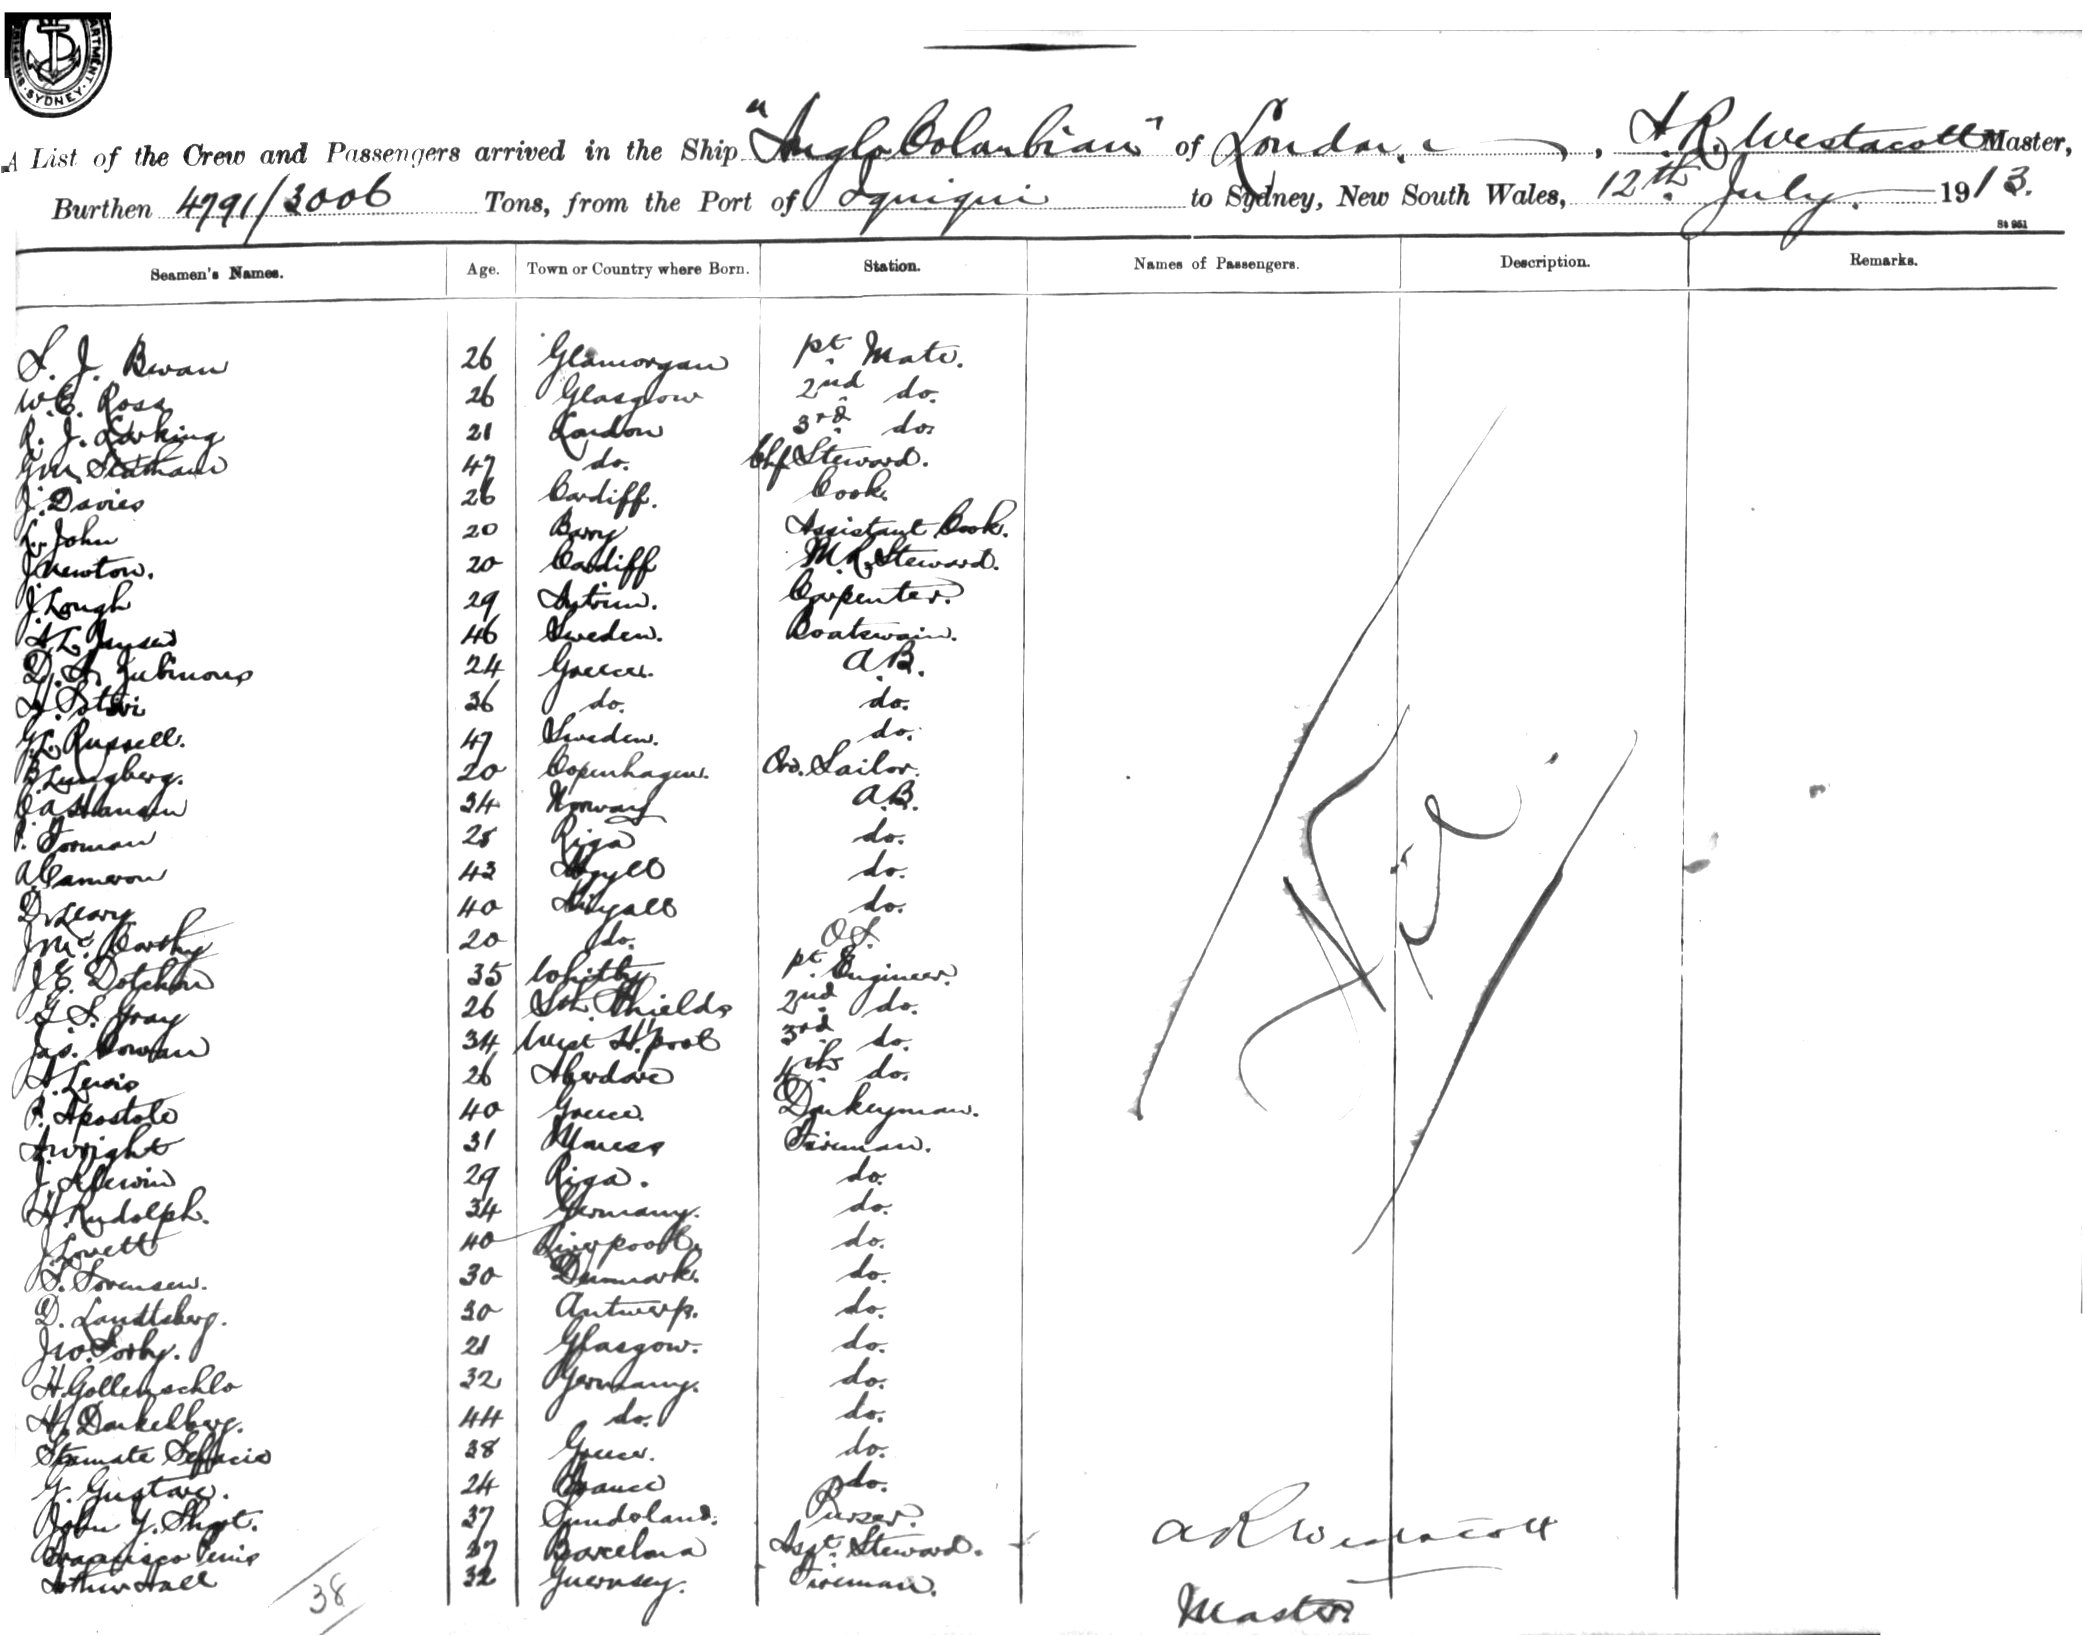 SYDNEY
A List of the Crew and Passengers arrived in the Ship "Anglo Columbian" of London, A. R. Westacott Master,
Burthen 4791/3006 Tons, from the Port of Iquiqui to Sydney, New South Wales, 12th July. 1913.
St 951
Seamen's Names. Age. Town or Country where Born. Station. Names of Passengers. Description. Remarks.
S. J. Bevan 26 Glamorgan 1st Mate.
W.E. Ross 26 Glasgow 2nd do.
R. J. Larking 21 London 3rd do.
Statham 47 do. Chf Steward.
J. Davies 26 Cardiff. Cook.
L. John 20 Barry Assistant Cook.
J Newton. 20 Cardiff M.R. Steward.
J. Lough 29 Antrim. Carpenter.
A.L. Jansen 46 Sweden. Boatswain.
D. A. 24 Greece. A.B.
36 do. do.
G.L. Russell. 47 Sweden. do.
B. Lungberg. 20 Copenhagen. Ord. Sailor.
C A Hansen 34 Norway A.B.
P. Forman 25 Riga do.
A. Cameron 43 Argyll do.
D. Leary 40 do.
J Mc Carthy 20 do. O.S.
J. E. Dotchin 35 Whitby 1st Engineer.
G S. Gray 26 Sth. Shields 2nd do.
Jas. Cowan 34 West H'pool 3rd do.
A. Lewis 26 Aberdare 4th do.
P. Apostole 40 Greece. Donkeyman.
A. Wright 31 Fireman.
J. 29 Riga. do.
H. Rudolph. 34 Germany. do.
J Lovett 40 Liverpool. do.
S. Sorensen. 30 Denmark. do.
D. Landtsberg. 30 Antwerp. do.
Jno. Sorby. 21 Glasgow. do.
H Gollenschlo 32 Germany. do.
H. Dankelberg. 44 do. do.
Stamate 38 Greece. do.
G. Gustave. 24 France do.
John Y. Short. 37 Sunderland. Purser.
Francisco 27 Barcelona Asst. Steward.
Arthur Hall 32 Guernsey. Fireman.
38
Nil
A R Westacott
Master